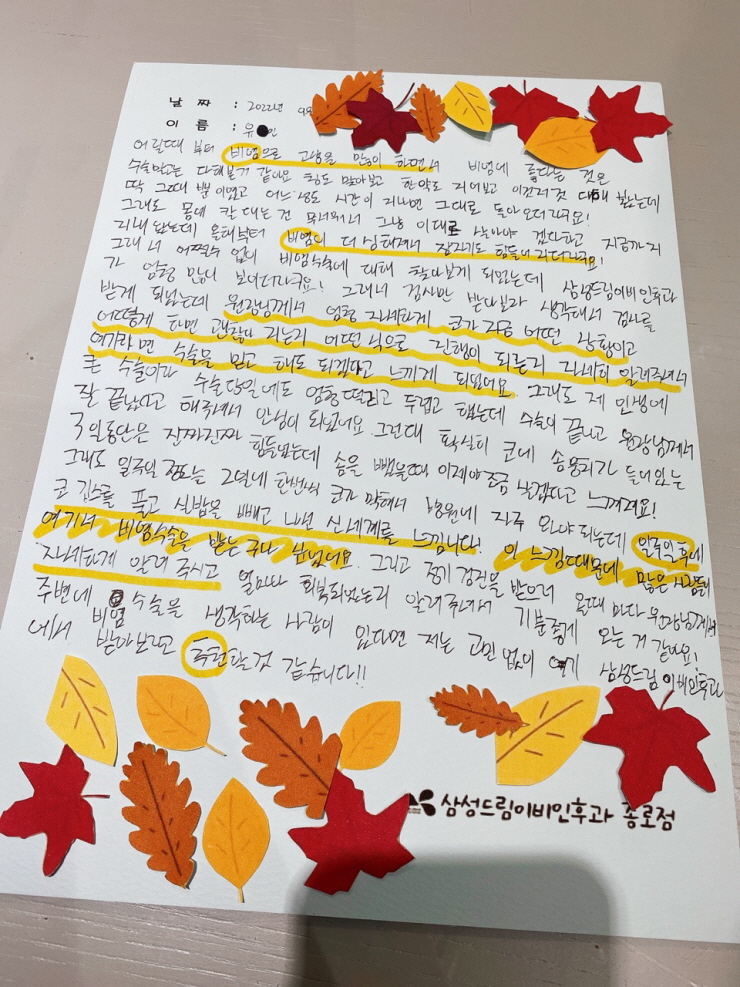 날 짜 : 2022년 9월
이 름 : 유 인
어릴때 부터 비염으로 고생을 많이 하면서 비염에 좋다는 것은
수술말고는 다해본거 같아요 침도 맞아보고 한약도 지어보고 이것저것 다해 봤는데
딱 그때 뿐이였고 어느정도 시간이 지나면 그대로 돌아오더라구요!
그래도 몸에 칼 대는건 무서워서 그냥 이대로 살아야 겠다하고 지금까지
지내왔는데 올해부터 비염이 더 심해져서 잠자기도 힘들어지더라구요!
그래서 어쩔수 없이 비염수술에 대해 찾아보게 되었는데 삼성드림이비인후과
가 엄청 많이 보이더라구요! 그래서 검사만 받아보자 생각해서 검사를
받게 되었는데 원장님께서 엄청 자세하게 코가 지금 어떤 상황이고
어떻게 하면 괜찮아 지는지 어떤식으로 진행이 되는지 자세히 알려주셔서
여기라면 수술을 믿고 해도 되겠다고 느끼게 되었어요. 그래도 제 인생에
큰 수술이라 수술당일에도 엄청 떨리고 두렵고 했는데 수술이 끝나고 원장님께서
잘 끝났다고 해주셔서 안심이 되었어요. 그런데 확실히 코에 솜뭉치가 들어있는
3일동안은 진짜진짜 힘들었는데 솜을 뺐을때 이제야 조금 낫겠다고 느껴져요!
그래도 일주일 정도는 2일에 한번씩 코가 막혀서 병원에 자주 와야 되는데 일주일후에
코 깁스를 풀고 실밥을 빼고 나면 신세계를 느낍니다! 이 느낌때문에 많은 사람들이
여기서 비염수술을 받는구나 싶었어요. 그리고 정기 검진을 받으러 올때 마다 원장님께서
자세하게 알려 주시고 얼마나 회복되었는지 알려주셔서 기분좋게 오는 거 같아요!
주변에 비염 수술을 생각하는 사람이 있다면 저는 고민 없이 여기 삼성드림이비인후과
에서 받아보라고 추천할것 같습니다!!
삼성드림이비인후과 종로점